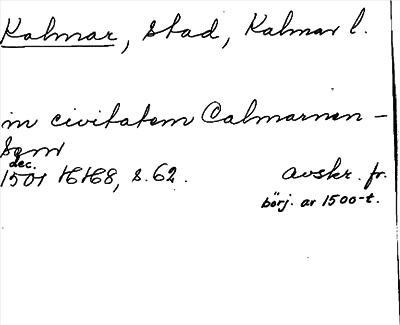 Kalmar, stad, Kalmar l.
in civitatem Calmarnen-
sem
dec.
1501 HH68, s. 62. Avskr. fr.
börj. av 1500-t.